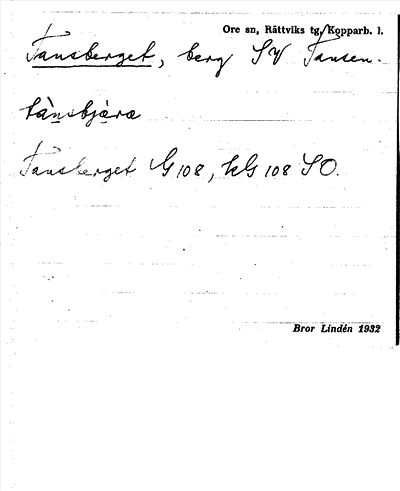 Ore sn, Rättviks tg, Kopparb. l.
Tansberget, berg SV Tansen.
tànsbjæ̀ræ
Tansberget G 108, kG 108 SO.
Bror Lindén 1932